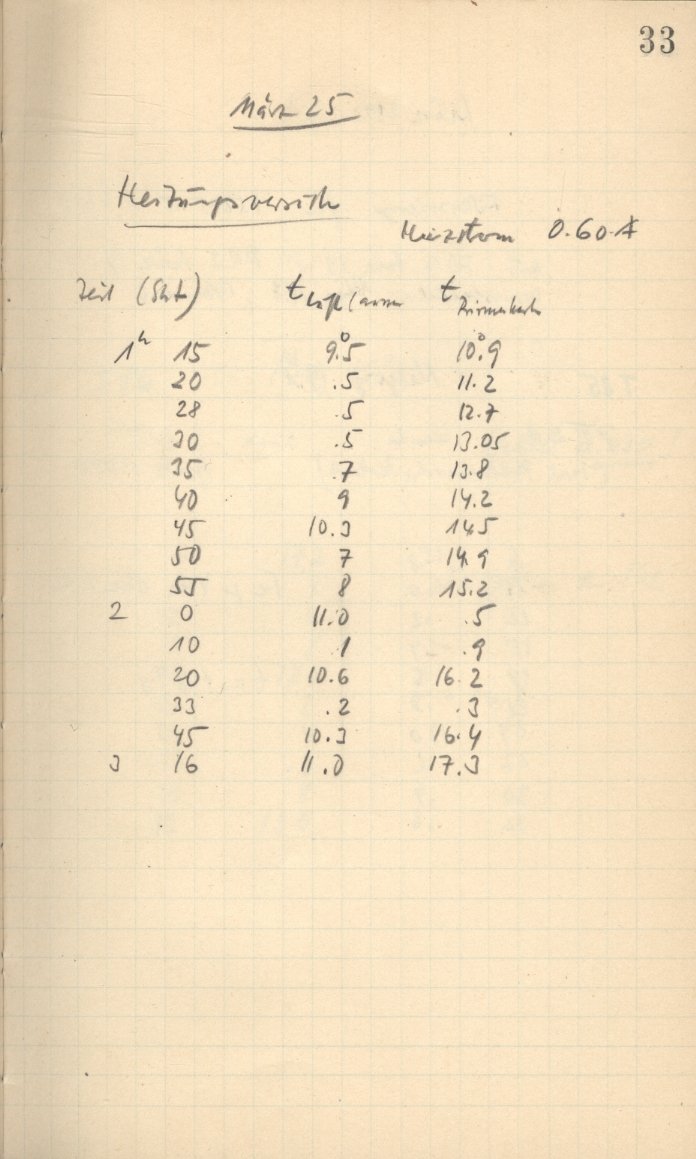 33
März 25
Heizungsversuch
Heizstrom 0.60 A
Zeit (Skt.) t Luft (aussen t Prismenkasten
1h 15 9.°5 10.°9
20 .5 11.2
28 .5 12.7
30 .5 13.05
35 .7 13.8
40 9 14.2
45 10.3 14.5
50 7 14.9
55 8 15.2
2 0 11.0 .5
10 1 .9
20 10.6 16.2
33 .2 .3
45 10.3 16.4
3 16 11.0 17.3